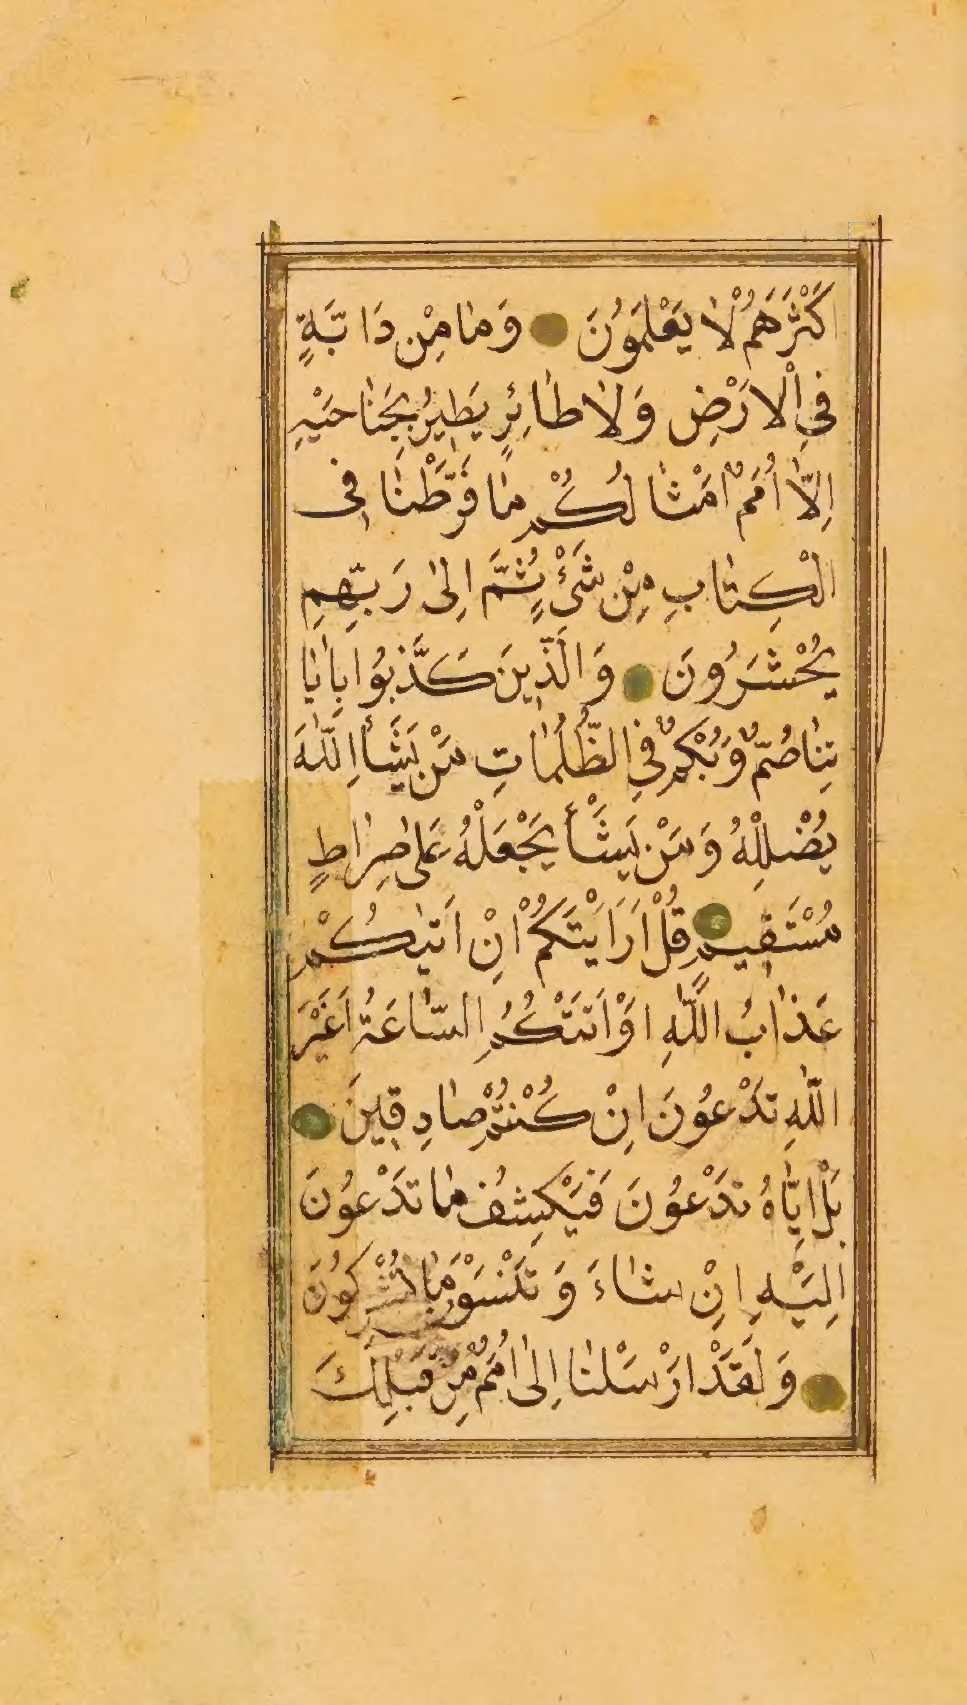 كَثَرَهُمْ لَا يَعْلَمُونَ وَمَا مِنْ دَابَّةٍ
فِي الْاَرْضِ وَلَا طَائِرٍ يَطِيرُ بِجَنَاحَيْهِ
اِلَّا اُمَمٌ اَمْثَالُكُمْ مَا فَرَّطْنَا فِى
الْكِتَابِ مِنْ شَىْءٍ ثُمَّ اِلىٰ رَبِّهِمْ
يُحْشَرُونَ وَالَّذِينَ كَذَّبُوا بِاٰيَا
تِنَا صُمٌّ وَبُكْمٌ فِي الظُّلُمَاتِ مَنْ يَشَأِ اللّٰهُ
يُضْلِلْهُ وَمَنْ يَشَأْ يَجْعَلْهُ عَلىٰ صِرَاطٍ
مُسْتَقِيمٍ قُلْ اَرَاَيْتَكُمْ اِنْ اَتٰيكُمْ
عَذَابُ اللّٰهِ اَوْ اَتَتْكُمُ السَّاعَةُ اَغَيْرَ
اللّٰهِ تَدْعُونَ اِنْ كُنْتُمْ صَادِقِينَ
بَلْ اِيَّاهُ تَدْعُونَ فَيَكْشِفُ مَا تَدْعُونَ
اِلَيْهِ اِنْ شَاءَ وَتَنْسَوْنَ مَا تُشْرِكُونَ
وَلَقَدْ اَرْسَلْنَا اِلىٰ اُمَمٍ مِنْ قَبْلِكَ